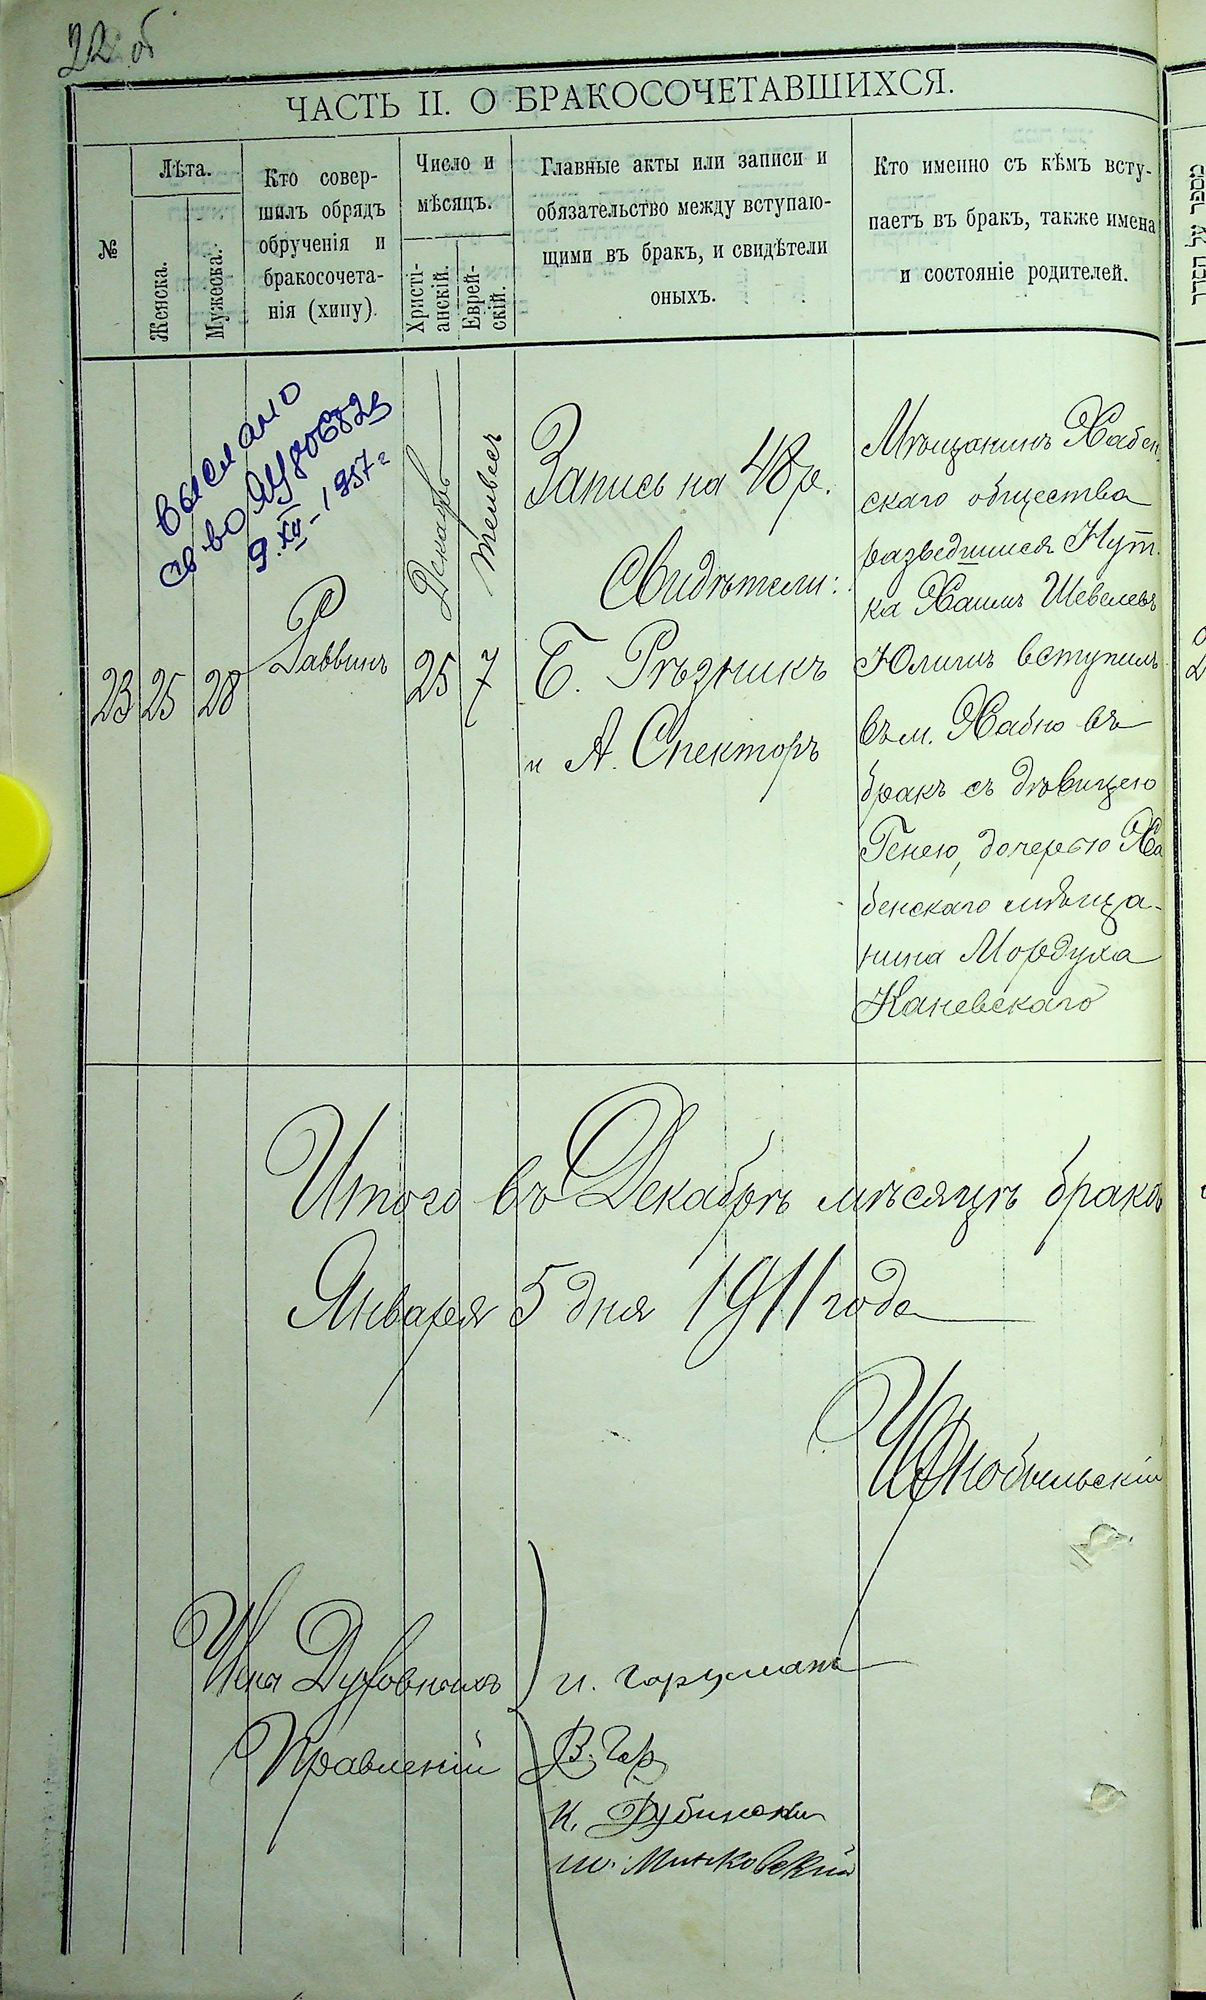 22 об
ЧАСТЬ II. О БРАКОСОЧЕТАВШИХСЯ.
№
Лѣта.
Женска.
Мужеска.
Кто совер-
шилъ обрядъ
обрученія и
бракосочета-
нія (хипу).
Число и
мѣсяцъ.
Христі-
анскій.
Еврей-
скій.
Главные акты или записи и
обязательство между вступаю-
щими въ бракъ, и свидѣтели
оныхъ.
Кто именно съ кѣмъ всту-
паетъ въ бракъ, также имена
и состояніе родителей.
выслано
св во
9.XII-1957г
23
25
28
Раввинъ
Декабрь
25
Тейвесъ
7
Запись на 48 р.
Свидѣтели:
Б. Рѣзникъ
и А. Спекторъ
Мѣщанинъ Хабен
скаго общества
разведшійся Нут
ка Хаимъ Шевелевъ
Юлигъ вступилъ
въ м. Хабно въ
бракъ съ дѣвицею
Генею, дочерью Ха
бенскаго мѣща-
нина Мордуха
Каневскаго
Итого въ Декабрѣ мѣсяцѣ браков
Января 5 дня 1911 года
Чернобыльскій
Члены Духовныхъ
Правленій
В. Гер
И. Рубински
Ш. Минковскій